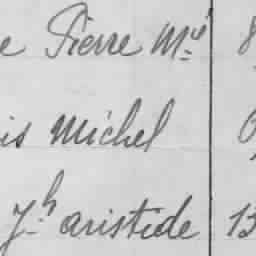 e Pierre Mie 8
is Michel
Jh aristide 13